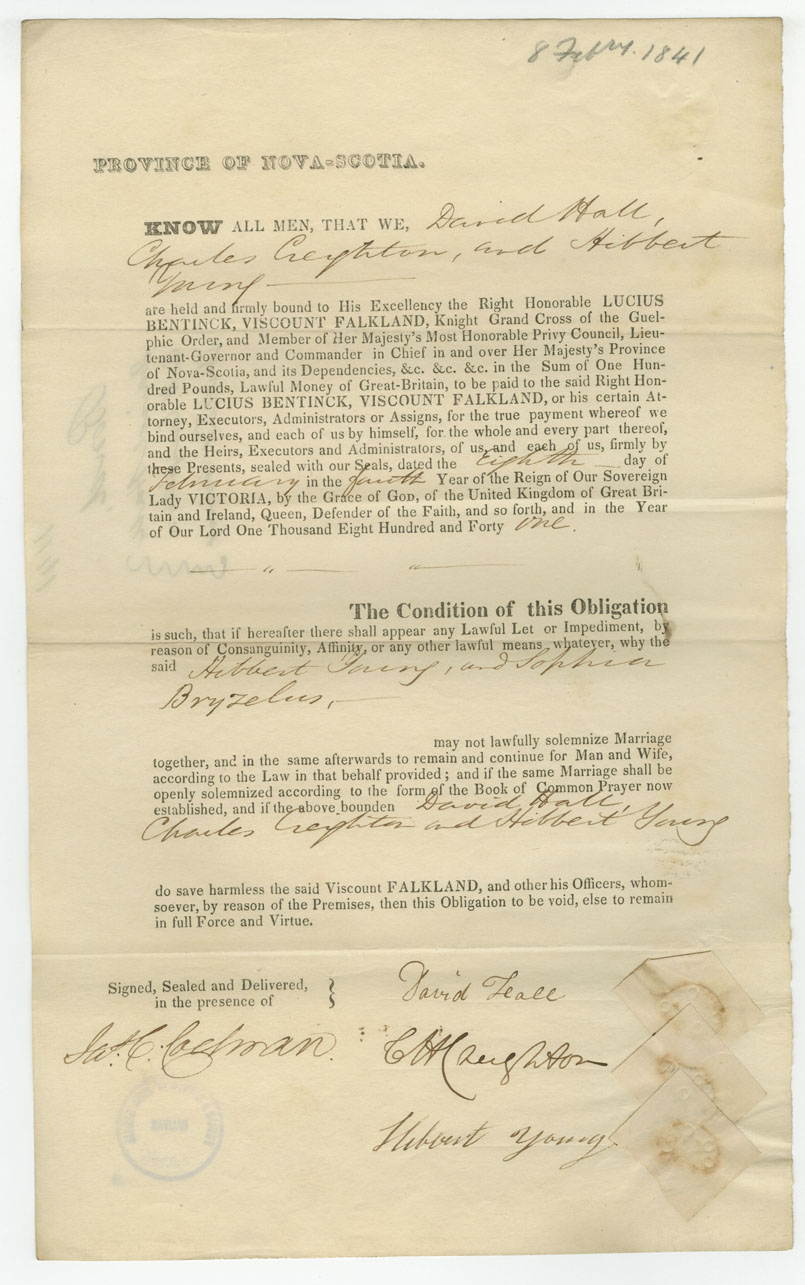 8 Febry. 1841
PROVINCE OF NOVA-SCOTIA.
KNOW ALL MEN, THAT WE, David Hall,
Charles Creighton, and Hibbert
Young
are held and firmly bound to His Excellency the Right Honorable LUCIUS
BENTINCK, VISCOUNT FALKLAND, Knight Grand Cross of the Guel-
phic Order, and Member of Her Majesty's Most Honorable Privy Council, Lieu-
tenant-Governor and Commander in Chief in and over Her Majesty's Province
of Nova-Scotia, and its Dependencies, &c. &c. &c. in the Sum of One Hun-
dred Pounds, Lawful Money of Great-Britain, to be paid to the said Right Hon-
orable LUCIUS BENTINCK, VISCOUNT FALKLAND, or his certain At-
torney, Executors, Administrators or Assigns, for the true payment whereof we
bind ourselves, and each of us by himself, for the whole and every part thereof,
and the Heirs, Executors and Administrators, of us, and each of us, firmly by
these Presents, sealed with our Seals, dated the Eighth day of
February in the fourth Year of the Reign of Our Sovereign
Lady VICTORIA, by the Grace of God, of the United Kingdom of Great Bri-
tain and Ireland, Queen, Defender of the Faith, and so forth, and in the Year
of Our Lord One Thousand Eight Hundred and Forty one.
The Condition of this Obligation
is such, that if hereafter there shall appear any Lawful Let or Impediment, by
reason of Consanguinity, Affinity, or any other lawful means whatever, why the
said Hibbert Young, and Sophia
Bryzelus,
may not lawfully solemnize Marriage
together, and in the same afterwards to remain and continue for Man and Wife,
according to the Law in that behalf provided; and if the same Marriage shall be
openly solemnized according to the form of the Book of Common Prayer now
established, and if the above bounden David Hall,
Charles Creighton and Hibbert Young
do save harmless the said Viscount FALKLAND, and other his Officers, whom-
soever, by reason of the Premises, then this Obligation to be void, else to remain
in full Force and Virtue.
Signed, Sealed and Delivered,
in the presence of
David Hall
Jas. C. Cochran.
C H Creighton
Hibbert Young